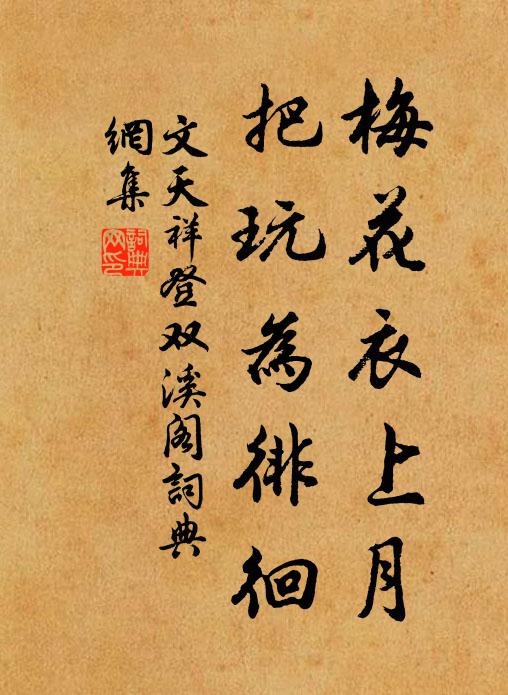 梅花衣上月
把玩為徘徊
文天祥登双溪阁詞典
網集
詞典
网印